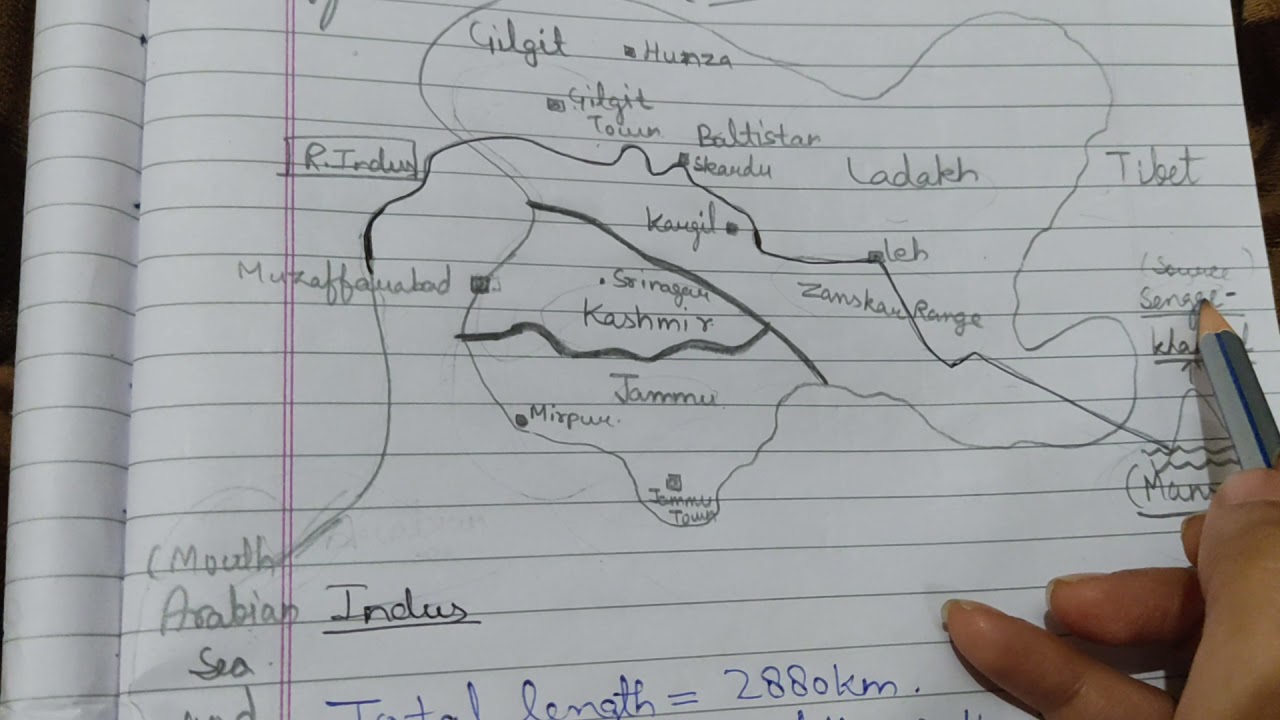 Gilgit
Hunza
Gilgit
Town
Baltistan
Skardu
R.Indus
Ladakh
Tibet
Kargil
Leh
Muzaffarabad
Srinagar
Kashmir
Zanskar Range
(Source)
Jammu
Mirpur.
Jammu
Town
(Mouth
Arabian
Sea
and
Indus
Total length = 2880km.